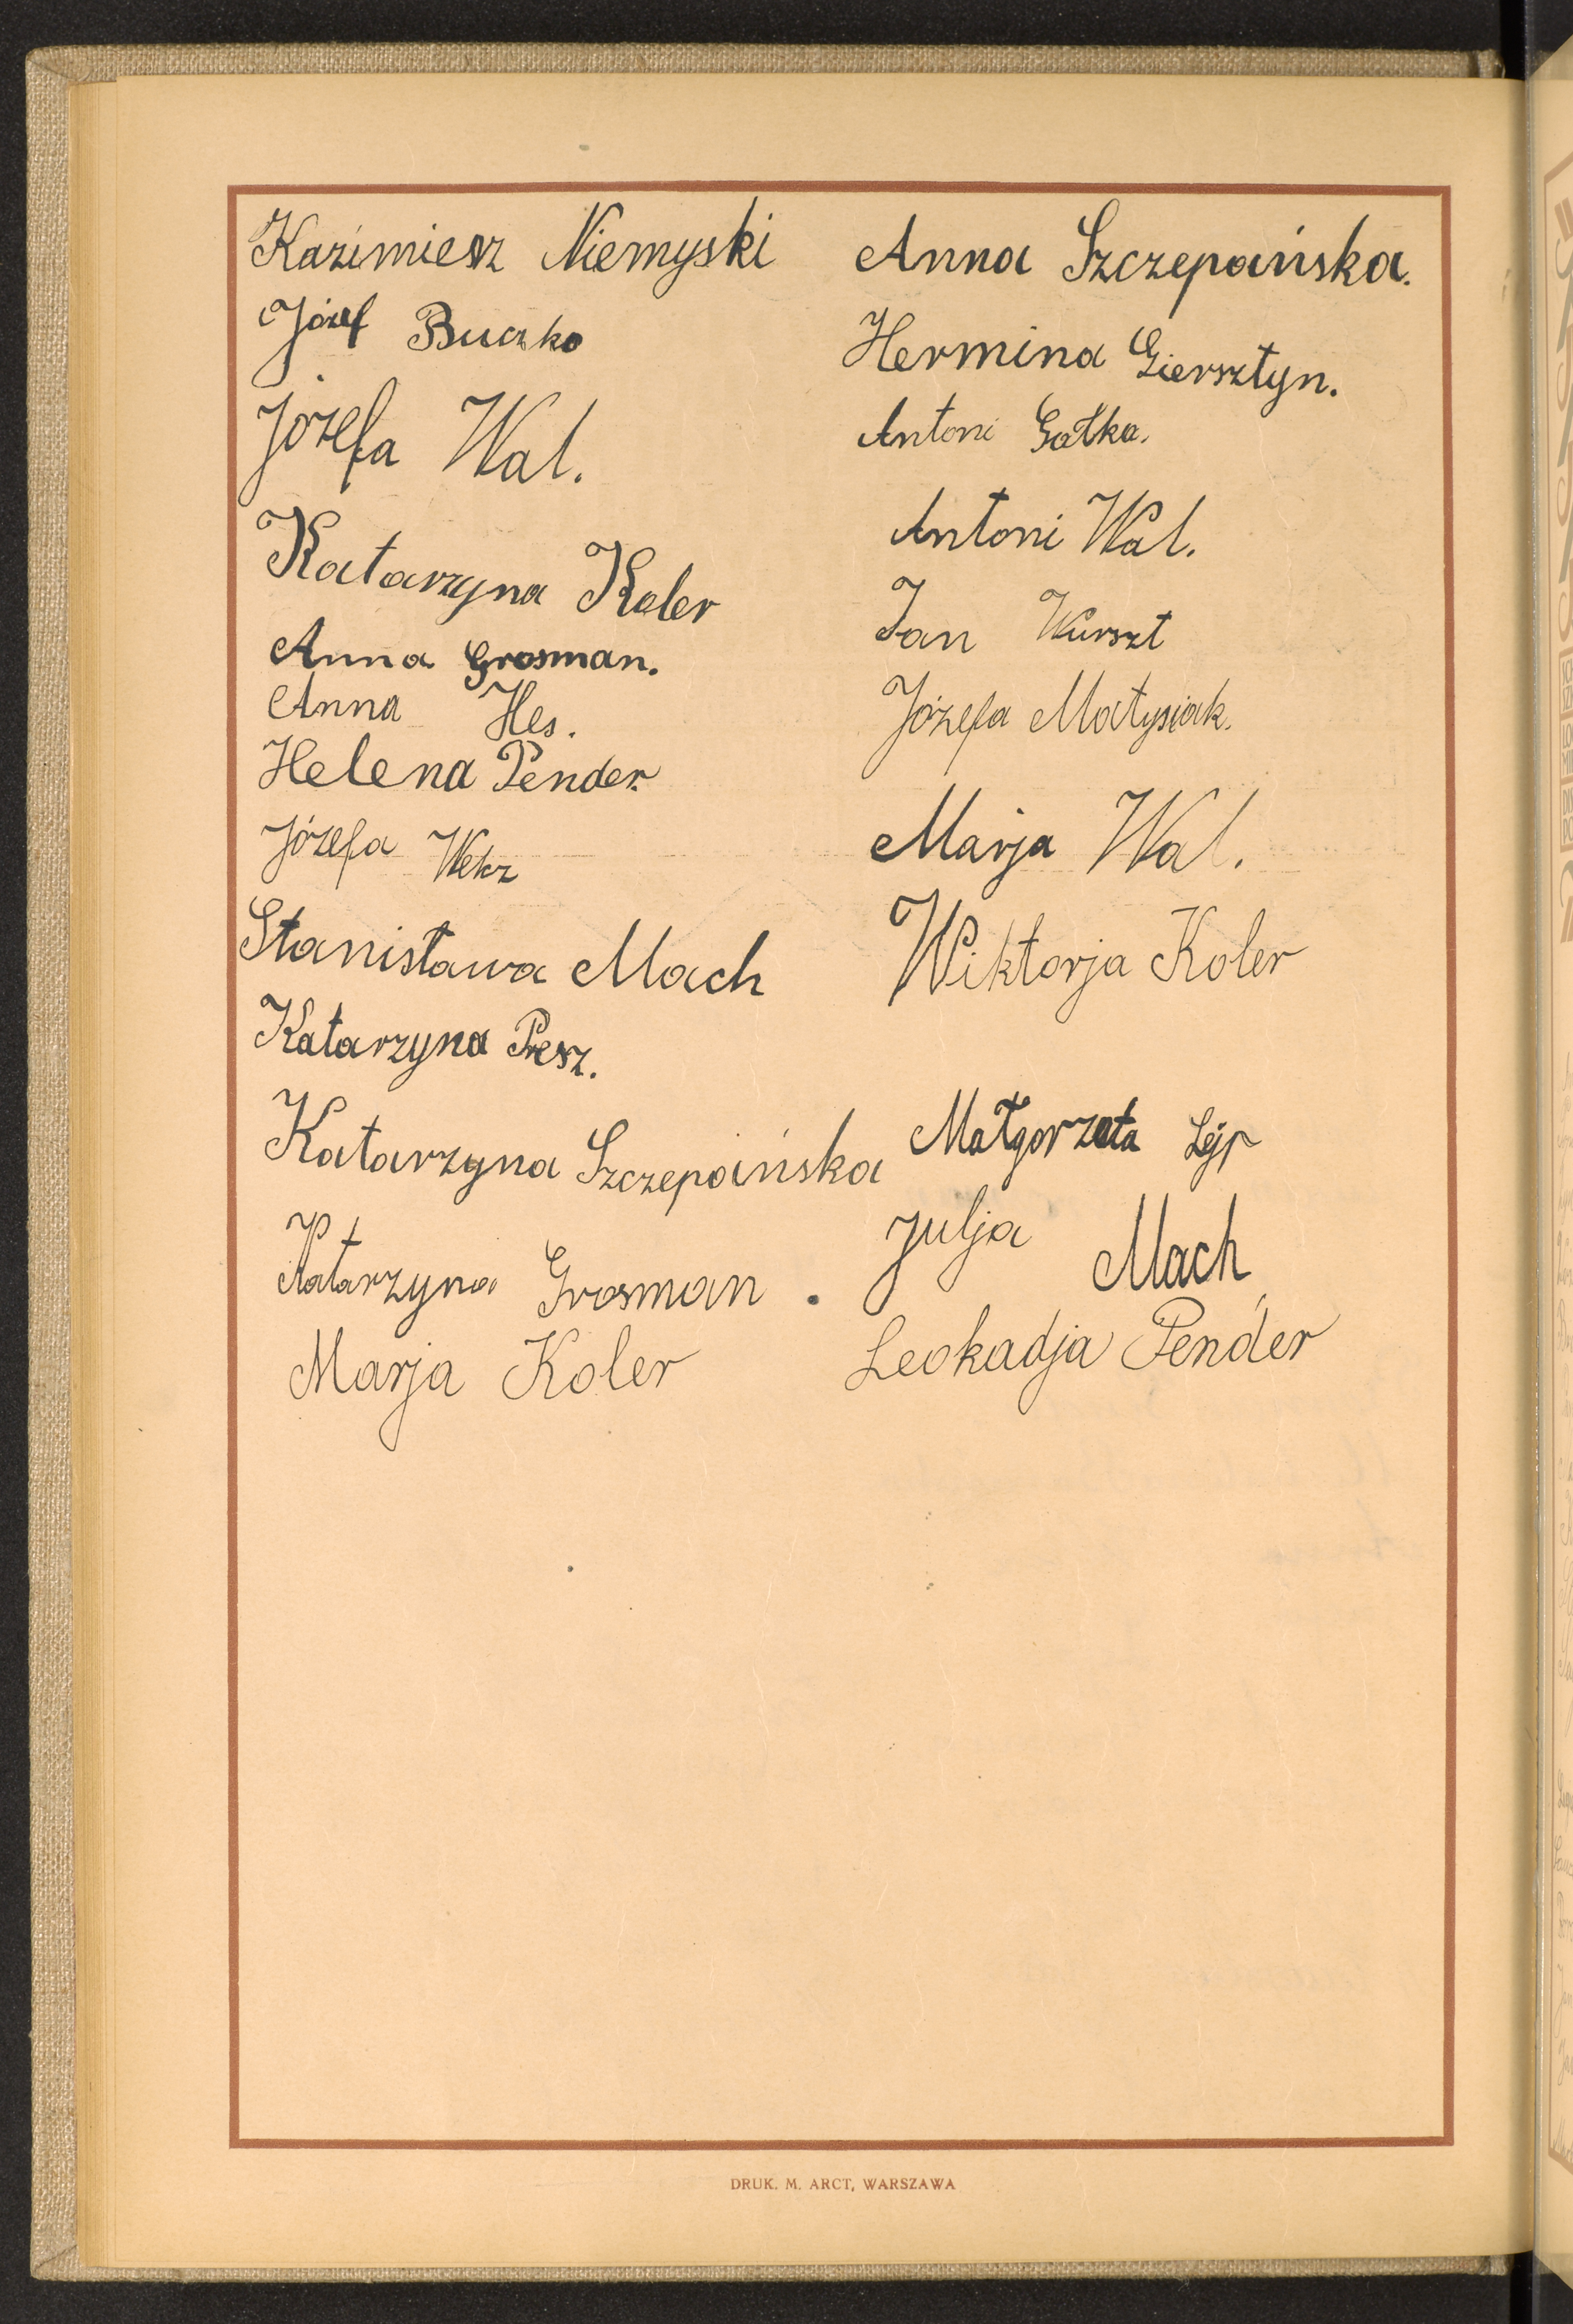 Kazimiesz Niemyski
Józef Buczko
Józefa Wal.
Katarzyna Koler
Anna Grosman.
Anna Hes.
Helena Pender.
Józefa
Stanisława Mach
Katarzyna Presz.
Katarzyna Szczepańska
Katarzyna Grosman.
Marja Koler
Anna Szczepańska.
Hermina Giersztyn.
Antoni Gałka.
Antoni Wal.
Jan Wurszt
Józefa Matysiak.
Marja Wal.
Wiktorja Koler
Małgorzata Lejp
Julja Mach
Leokadja Pender
DRUK. M. ARCT, WARSZAWA